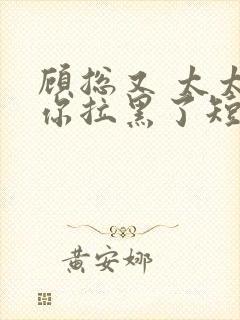 顾总又 太太
你拉黑了短
黄安娜